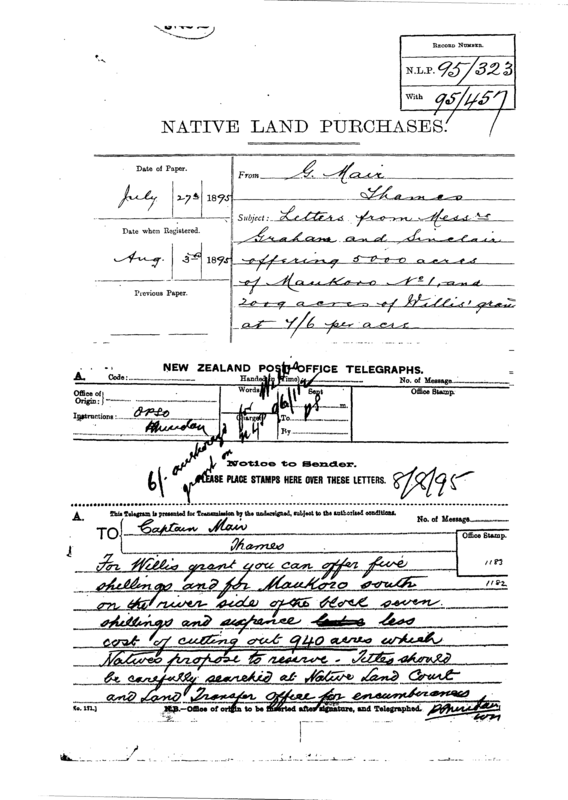 RECORD NUMBER.
N.L.P. 95/323
With 95/457
NATIVE LAND PURCHASES.
Date of Paper.
July 27th 1895
Date when Registered.
Aug. 3rd 1895
Previous Paper.
From G. Mair
Thames
Subject: Letters from Messrs
Graham and Sinclair
offering 5000 acres
of Maukoro No 1, and
2009 acres of Willis' grant
at 7/6 per acre
NEW ZEALAND POST OFFICE TELEGRAPHS.
A. Code: Handed in (Time) No. of Message
Office of Origin: Words Sent Office Stamp.
Instructions: OPSO Charge To
Sheridan By
6/- authority
grant on
Notice to Sender.
PLEASE PLACE STAMPS HERE OVER THESE LETTERS. 8/8/95
A. This Telegram is presented for Transmission by the undersigned, subject to the authorised conditions. No. of Message
TO Captain Mair
Thames
Office Stamp.
1183
1182
For Willis grant you can offer five
shillings and for Maukoro south
on the river side of the block seven
shillings and sixpence less
cost of cutting out 940 acres which
Natives propose to reserve. Titles should
be carefully searched at Native Land Court
and Land Transfer Office for encumbrances
No. 157.] N.B.—Office of origin to be inserted after signature, and Telegraphed. P Sheridan
Wn